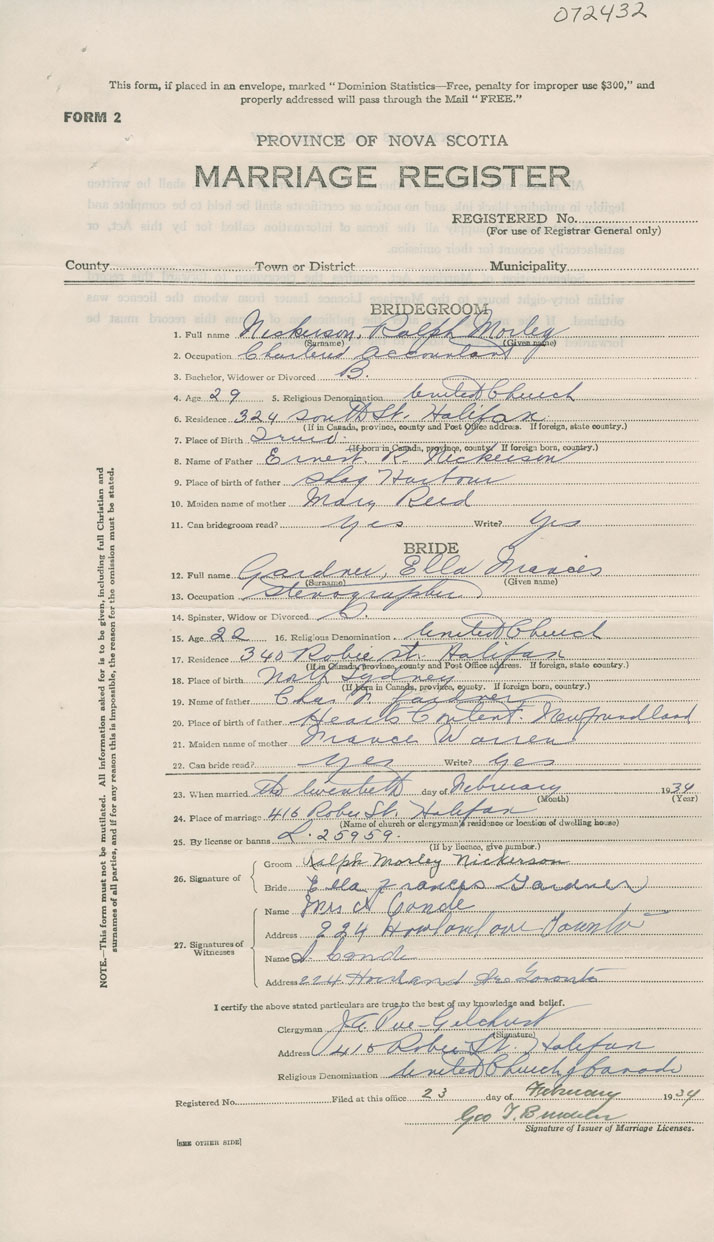 072432
This form, if placed in an envelope, marked "Dominion Statistics—Free, penalty for improper use $300," and
properly addressed will pass through the Mail "FREE."
FORM 2
PROVINCE OF NOVA SCOTIA
MARRIAGE REGISTER
REGISTERED No.
(For use of Registrar General only)
County Town or District Municipality
BRIDEGROOM
1. Full name Nickerson, Ralph Morley
(Surname) (Given name)
2. Occupation Chartered Accountant
3. Bachelor, Widower or Divorced B.
4. Age 29 5. Religious Denomination United Church
6. Residence 324 South St. Halifax
(If in Canada, province, county and Post Office address. If foreign, state country.)
7. Place of Birth Truro.
(If born in Canada, province, county. If foreign born, country.)
8. Name of Father Ernest R. Nickerson
9. Place of birth of father Shag Harbour
10. Maiden name of mother Mary Reed
11. Can bridegroom read? yes Write? yes
BRIDE
12. Full name Gardner, Ella Frances
(Surname) (Given name)
13. Occupation Stenographer
14. Spinster, Widow or Divorced
15. Age 22 16. Religious Denomination United Church
17. Residence 340 Robie St. Halifax
(If in Canada, province, county and Post Office address. If foreign, state country.)
18. Place of birth North Sydney
(If born in Canada, province, county. If foreign born, country.)
19. Name of father Chas Gardner
20. Place of birth of father Hearts Content. Newfoundland
21. Maiden name of mother France Warren
22. Can bride read? yes Write? yes
23. When married the twentieth day of February 1934
(Month) (Year)
24. Place of marriage 416 Robie St. Halifax
(Name of church or clergyman's residence or location of dwelling house)
25. By license or banns L. 25959.
(If by licence, give number.)
26. Signature of Groom Ralph Morley Nickerson
Bride Ella Frances Gardner
27. Signatures of Witnesses
Name Mrs A Conde
Address 224 Howland ave Toronto
Name Conde
Address 224 Howland Ave Toronto
I certify the above stated particulars are true to the best of my knowledge and belief.
Clergyman Pue-Gilchrist
(Signature)
Address 416 Robie St. Halifax
Religious Denomination United Church of Canada
Registered No. Filed at this office 23 day of February 1934
Geo T.
Signature of Issuer of Marriage Licenses.
[SEE OTHER SIDE]
NOTE.—This form must not be mutilated. All information asked for is to be given, including full Christian and
surnames of all parties, and if for any reason this is impossible, the reason for the omission must be stated.